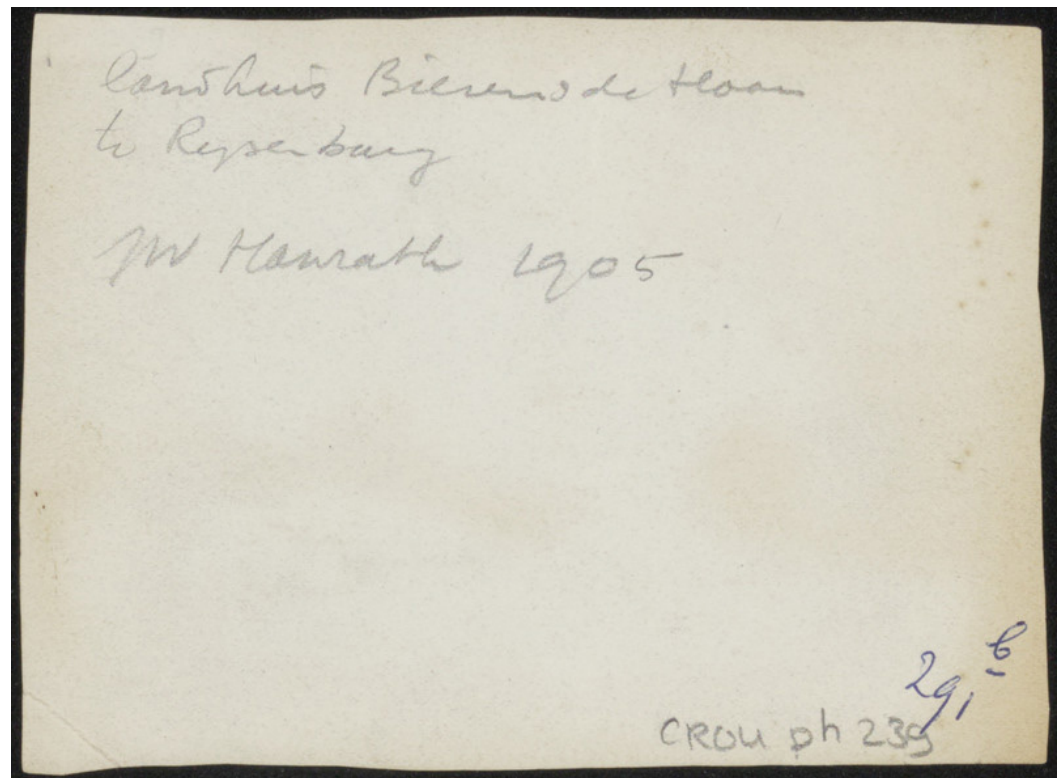 landhuis Bierens de Haan
te Rysenburg
JW Hanrath 1905
29, b
CROU ph 239